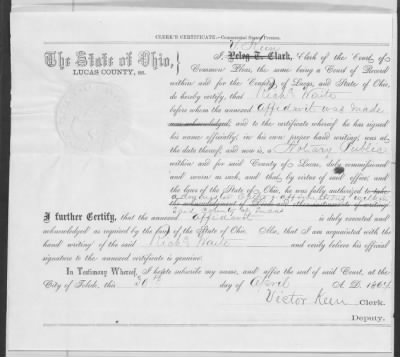 CLERK'S CERTIFICATE.—Commercial Steam Presses.
The State of Ohio,
LUCAS COUNTY, ss.
V. Keen
I, Peleg T. Clark, Clerk of the Court of
Common Pleas, the same being a Court of Record
within and for the County of Lucas, and State of Ohio,
do hereby certify, that Richd Waite
before whom the annexed Affidavit was made
acknowledged, and to the certificate whereof he has signed
his name officially, in his own proper hand writing, was at
the date thereof, and now is, a Notary Public
within and for said County of Lucas, duly commissioned
and sworn as such, and that by virtue of said office, and
the laws of the State of Ohio, he was fully authorized to take
administer oaths & affirmations within
said County of Lucas
I further Certify, that the annexed Affidavit is duly executed and
acknowledged as required by the law of the State of Ohio. Also, that I am acquainted with the
hand writing of the said Richd Waite and verily believe his official
signature to the annexed certificate is genuine.
In Testimony Whereof, I hereto subscribe my name, and affix the seal of said Court, at the
City of Toledo, this 30th day of April A.D. 1864
Victor Keen Clerk.
Deputy.